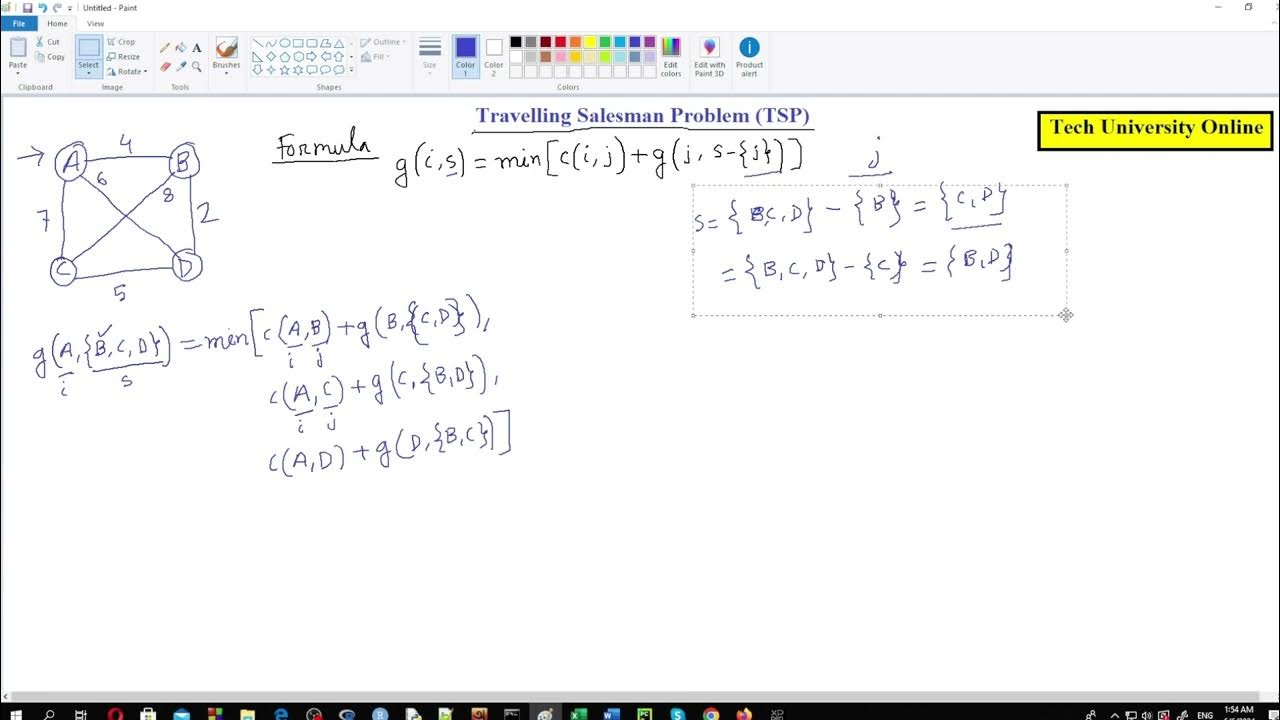 Untitled - Paint
File Home View
Paste
Cut
Copy
Clipboard
Select
Crop
Resize
Rotate
Image
A
Tools
Brushes
Shapes
Outline
Fill
Size
Color 1
Color 2
Colors
Edit colors
Edit with Paint 3D
Product alert
Travelling Salesman Problem (TSP)
Tech University Online
Formula
g(i,s) = min[c(i,j)+g(j, s-{j})]
j
A 4 B
6 8
7 2
C D
5
S= {B,C,D} - {B} = {C,D}
= {B,C,D} - {C} = {B,D}
g(A,{B,C,D}) = min[c(A,B)+g(B,{C,D}),
i s i j
c(A,C)+g(C,{B,D}),
i j
c(A,D)+g(D,{B,C})]
ENG
1:54 AM